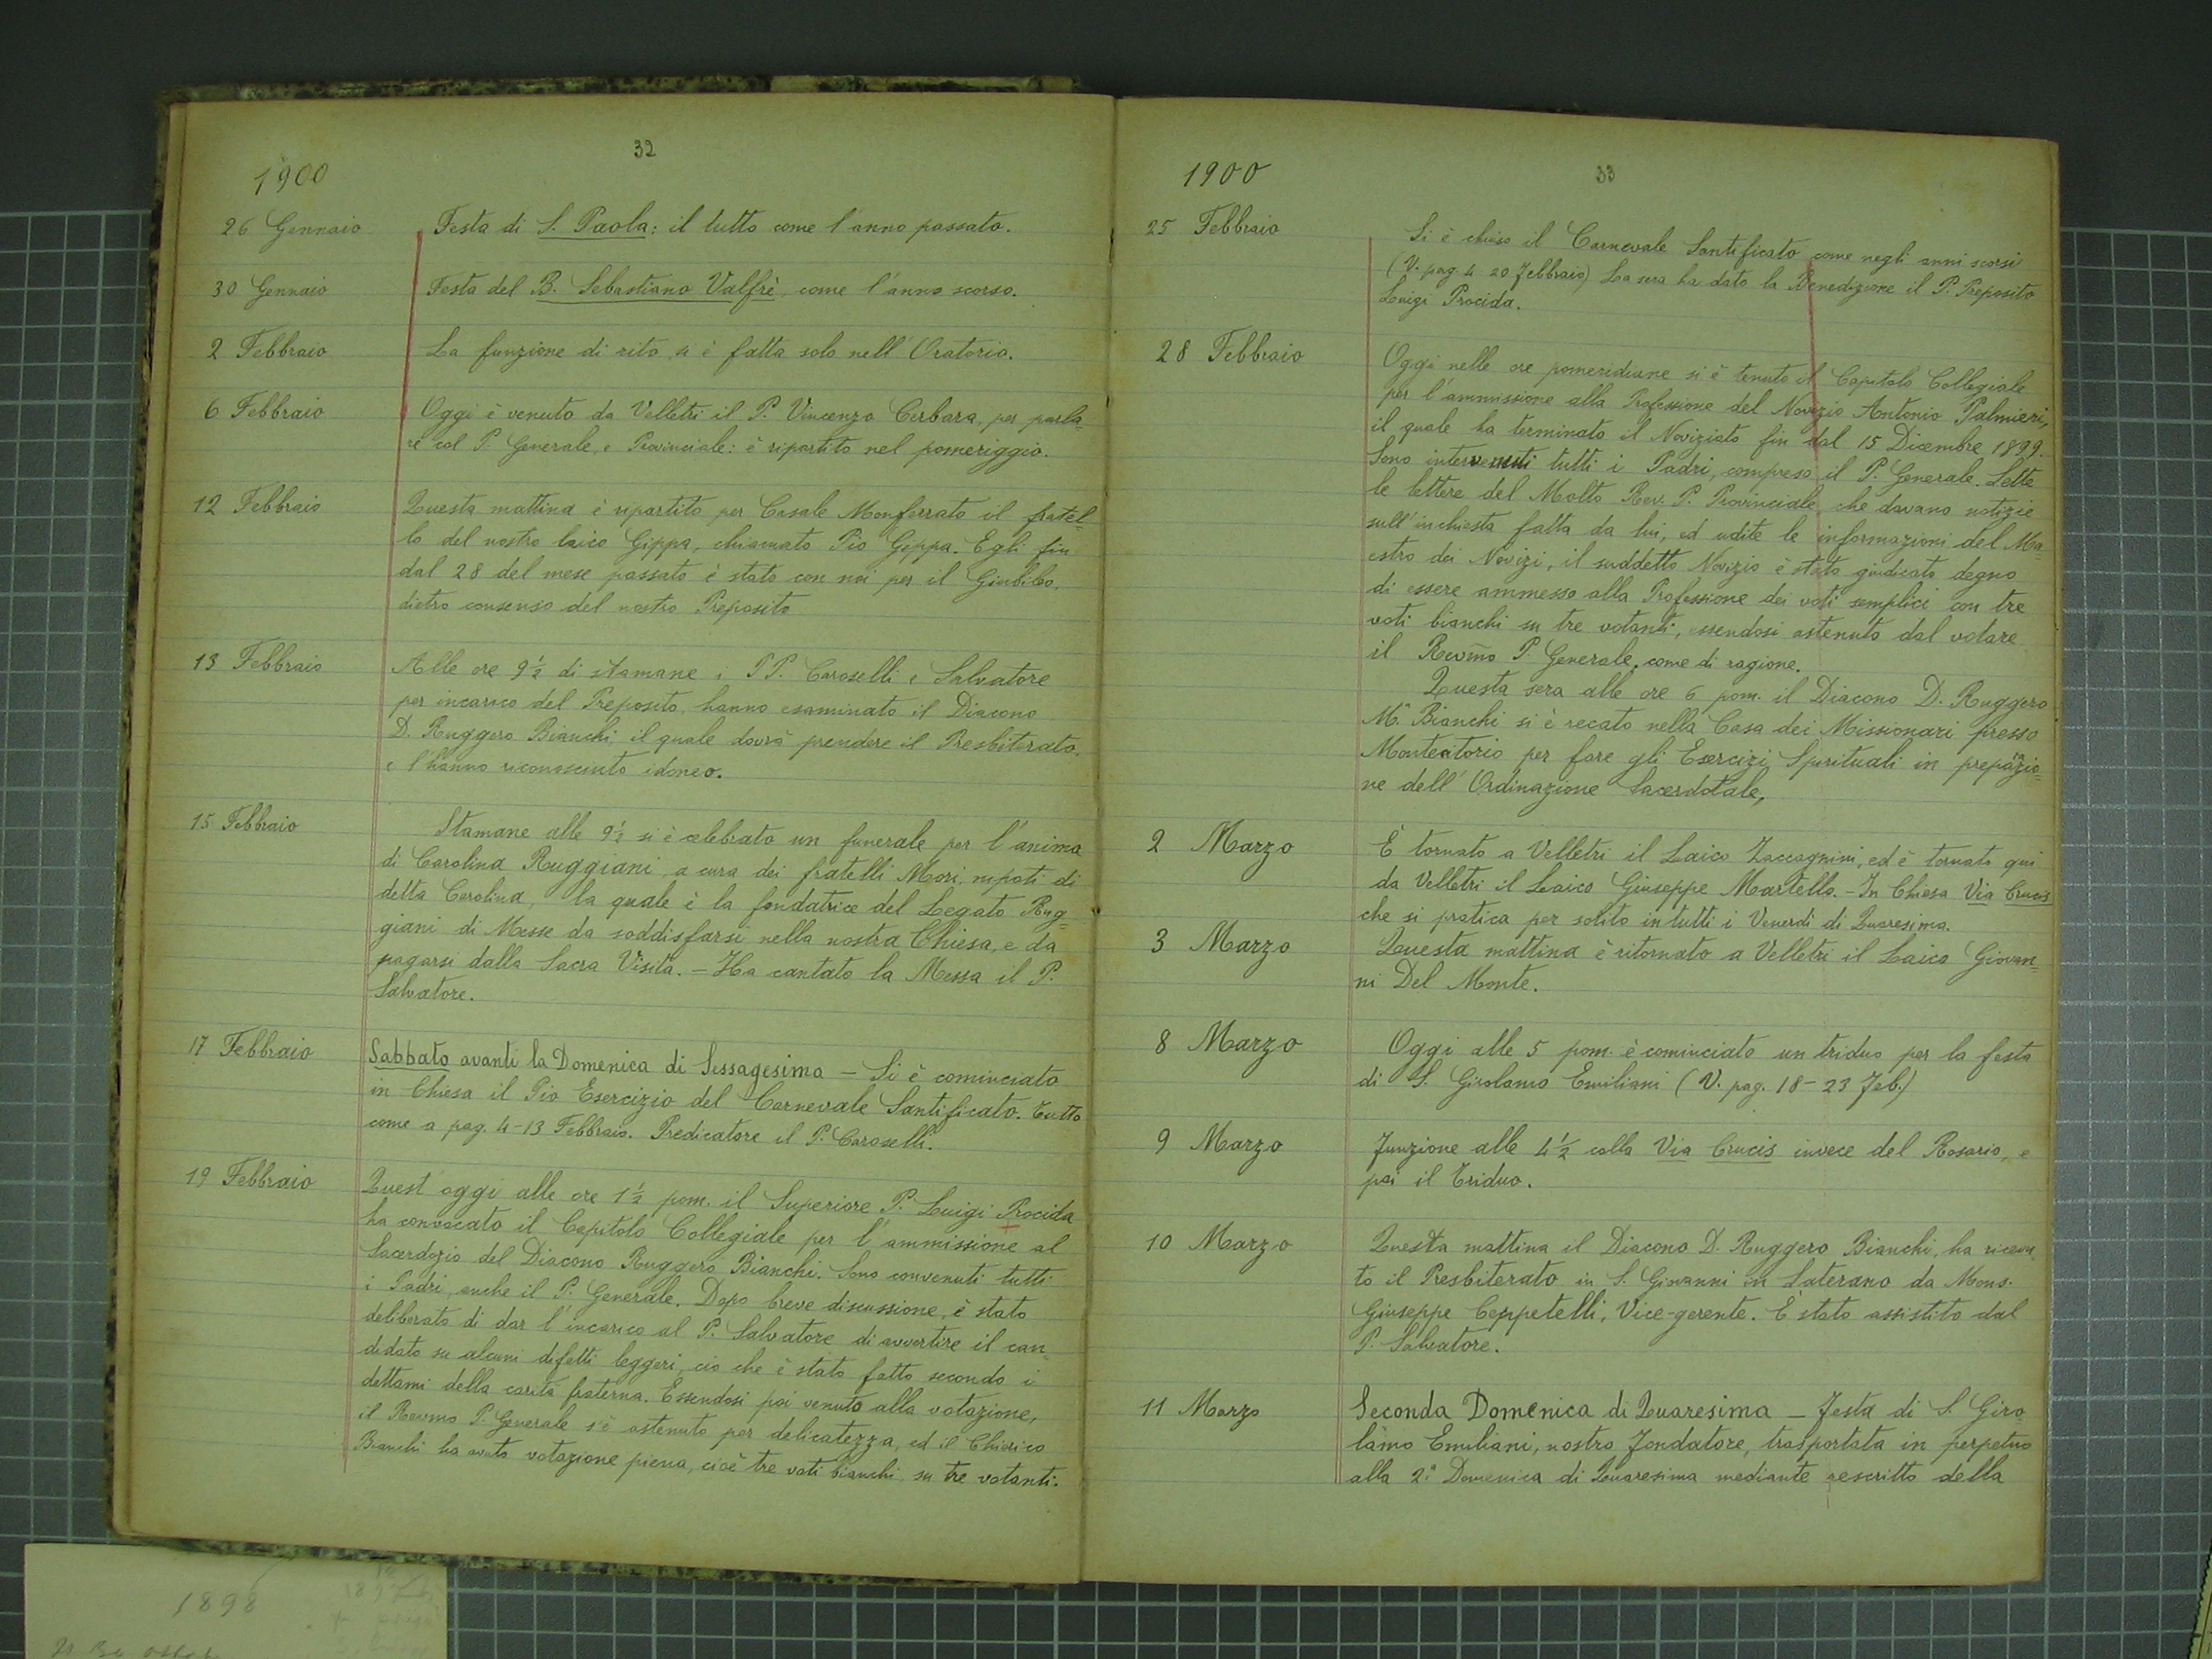 32
1900
26 Gennaio Festa di S. Paola: il tutto come l'anno passato.
30 Gennaio Festa del B. Sebastiano Valfrè, come l'anno scorso.
2 Febbraio La funzione di rito si è fatta solo nell'Oratorio.
6 Febbraio Oggi è venuto da Velletri il P. Vincenzo Cerbara, per parla-
re col P. Generale, e Provinciale: è ripartito nel pomeriggio.
12 Febbraio Questa mattina è ripartito per Casale Monferrato il fratel-
lo del nostro laico Gippa, chiamato Pio Gippa. Egli fin
dal 28 del mese passato è stato con noi per il Giubileo,
dietro consenso del nostro Preposito
13 Febbraio Alle ore 9½ di stamane i PP. Caroselli e Salvatore
per incarico del Preposito hanno esaminato il Diacono
D. Ruggero Bianchi, il quale dovrà prendere il Presbiterato,
e l'hanno riconosciuto idoneo.
15 Febbraio Stamane alle 9½ si è celebrato un funerale per l'anima
di Carolina Ruggiani, a cura dei fratelli Mori, nipoti di
detta Carolina, la quale è la fondatrice del Legato Rug-
giani di Messe da soddisfarsi nella nostra Chiesa, e da
pagarsi dalla Sacra Visita. - Ha cantato la Messa il P.
Salvatore.
17 Febbraio Sabbato avanti la Domenica di Sessagesima - Si è cominciato
in Chiesa il Pio Esercizio del Carnevale Santificato. Tutto
come a pag. 4-13 Febbraio. Predicatore il P. Caroselli.
19 Febbraio Quest'oggi alle ore 1½ pom. il Superiore P. Luigi Procida
ha convocato il Capitolo Collegiale per l'ammissione al
Sacerdozio del Diacono Ruggero Bianchi. Sono convenuti tutti
i Padri, anche il P. Generale. Dopo breve discussione, è stato
deliberato di dar l'incarico al P. Salvatore di avvertire il can-
didato su alcuni difetti leggeri, ciò che è stato fatto secondo i
dettami della carità fraterna. Essendosi poi venuto alla votazione,
il Revmo P. Generale s'è astenuto per delicatezza, ed il Chierico
Bianchi ha avuto votazione piena, cioè tre voti bianchi su tre votanti.
33
1900
25 Febbraio Si è chiuso il Carnevale Santificato come negli anni scorsi
(V. pag. 4 20 Febbraio) La sera ha dato la Benedizione il P. Preposito
Luigi Procida.
28 Febbraio Oggi nelle ore pomeridiane si è tenuto il Capitolo Collegiale
per l'ammissione alla Professione del Novizio Antonio Palmieri,
il quale ha terminato il Noviziato fin dal 15 Dicembre 1899.
Sono intervenuti tutti i Padri, compreso il P. Generale. Lette
le lettere del Molto Rev. P. Provinciale, che davano notizie
sull'inchiesta fatta da lui, ed udite le informazioni del Ma-
estro dei Novizi, il suddetto Novizio è stato giudicato degno
di essere ammesso alla Professione dei voti semplici con tre
voti bianchi su tre votanti, essendosi astenuto dal votare
il Revmo P. Generale, come di ragione.
Questa sera alle ore 6 pom. il Diacono D. Ruggero
Mª Bianchi si è recato nella Casa dei Missionari presso
Montecitorio per fare gli Esercizi Spirituali in preparazio-
ne dell'Ordinazione Sacerdotale,
2 Marzo È tornato a Velletri il Laico Zaccagnini, ed è tornato qui
da Velletri il Laico Giuseppe Martello. - In Chiesa Via Crucis
che si pratica per solito in tutti i Venerdì di Quaresima.
3 Marzo Questa mattina è ritornato a Velletri il Laico Giovan-
ni Del Monte.
8 Marzo Oggi alle 5 pom. è cominciato un triduo per la festa
di S. Girolamo Emiliani (V. pag. 18 - 23 Feb.)
9 Marzo Funzione alle 4½ colla Via Crucis invece del Rosario, e
poi il Triduo.
10 Marzo Questa mattina il Diacono D. Ruggero Bianchi, ha ricevu-
to il Presbiterato in S. Giovanni in Laterano da Mons.
Giuseppe Ceppetelli, Vice-gerente. È stato assistito dal
P. Salvatore.
11 Marzo Seconda Domenica di Quaresima - Festa di S. Giro-
lamo Emiliani, nostro Fondatore, trasportata in perpetuo
alla 2ª Domenica di Quaresima mediante rescritto della
1898